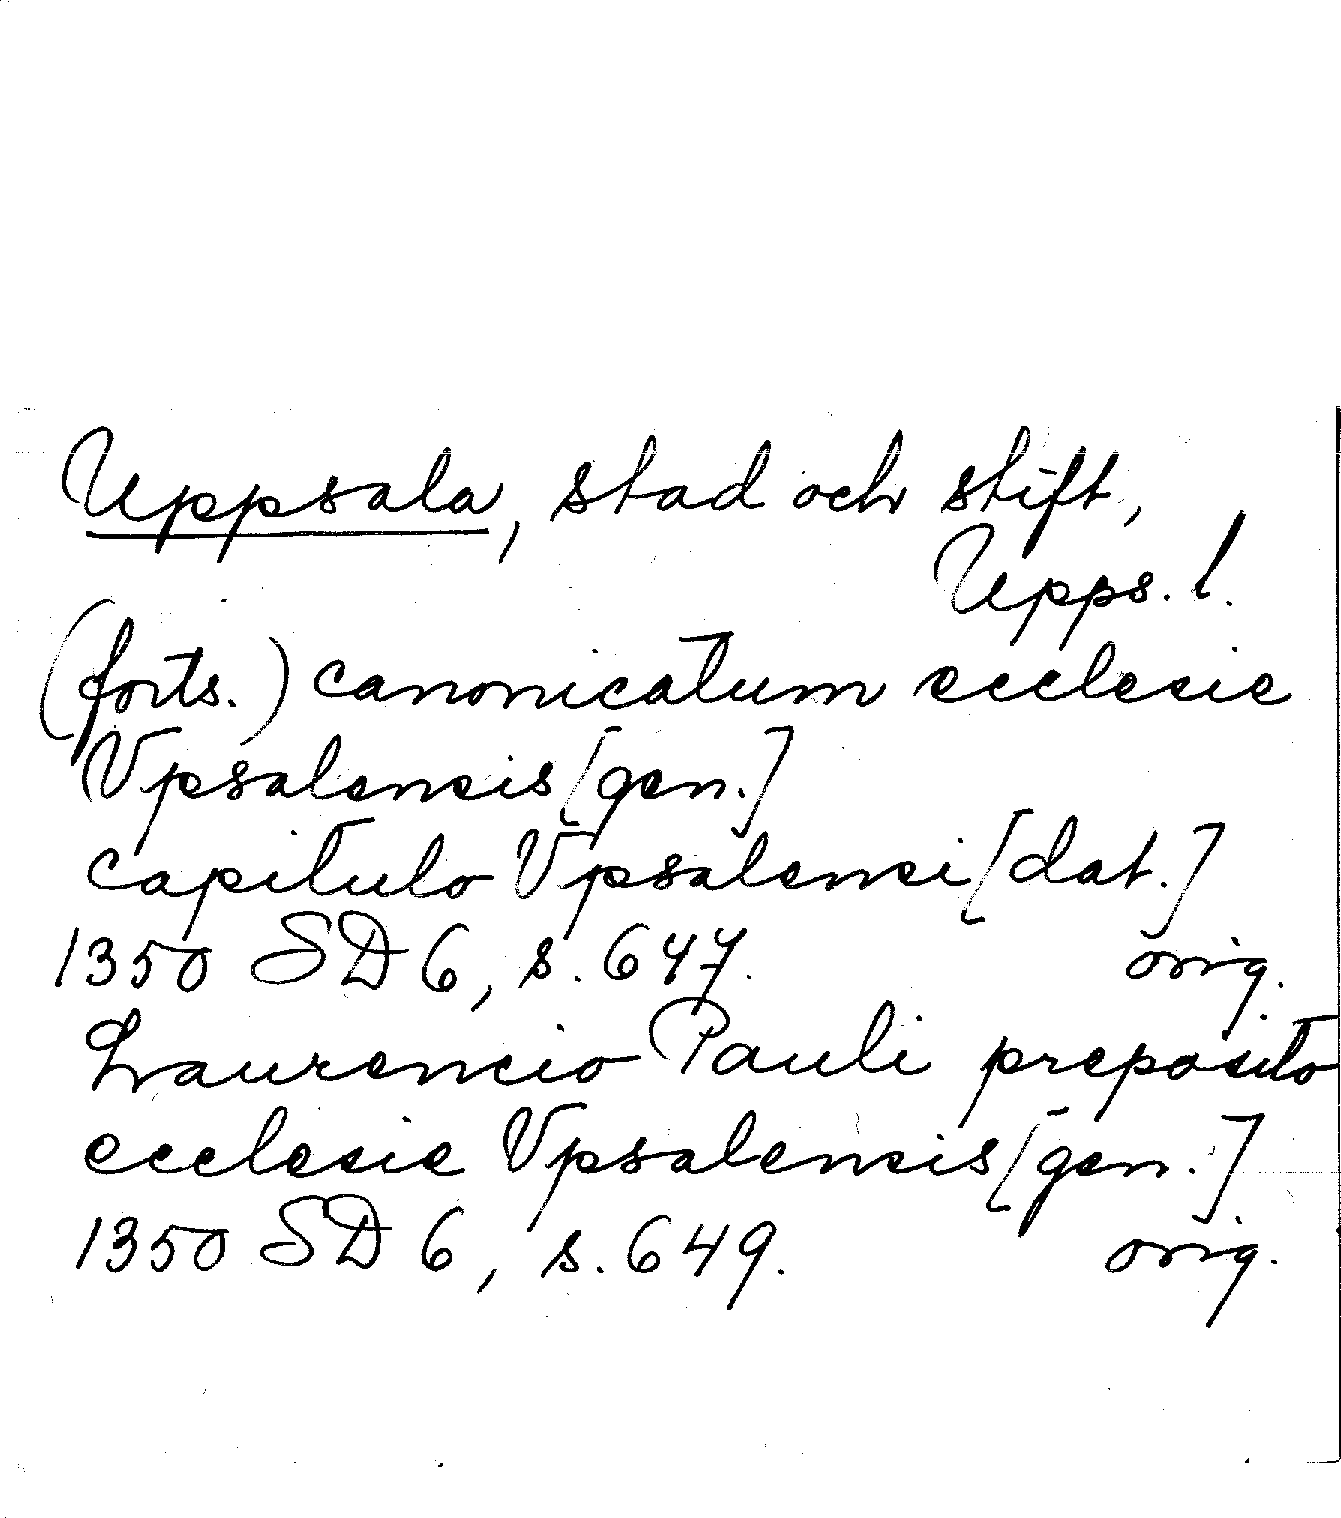 Uppsala, stad och stift,
Upps. l.
(forts.) canonicatum ecclesie
Vpsalensis [gen.]
capitulo Vpsalensi [dat.]
1350 SD 6, s. 647. orig.
Laurencio Pauli preposito
ecclesie Vpsalensis [gen.]
1350 SD 6, s. 649. orig.